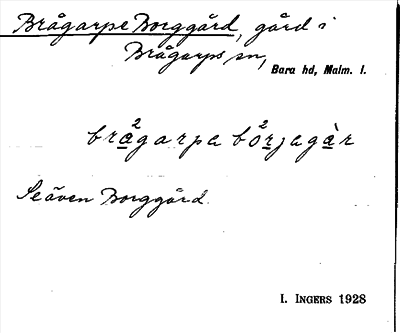 Brågarpe Borggård, gård i
Brågarps sn,
Bara hd, Malm. l.
brå²garpa bå²rjagàr
Se även Borggård.
I. INGERS 1928